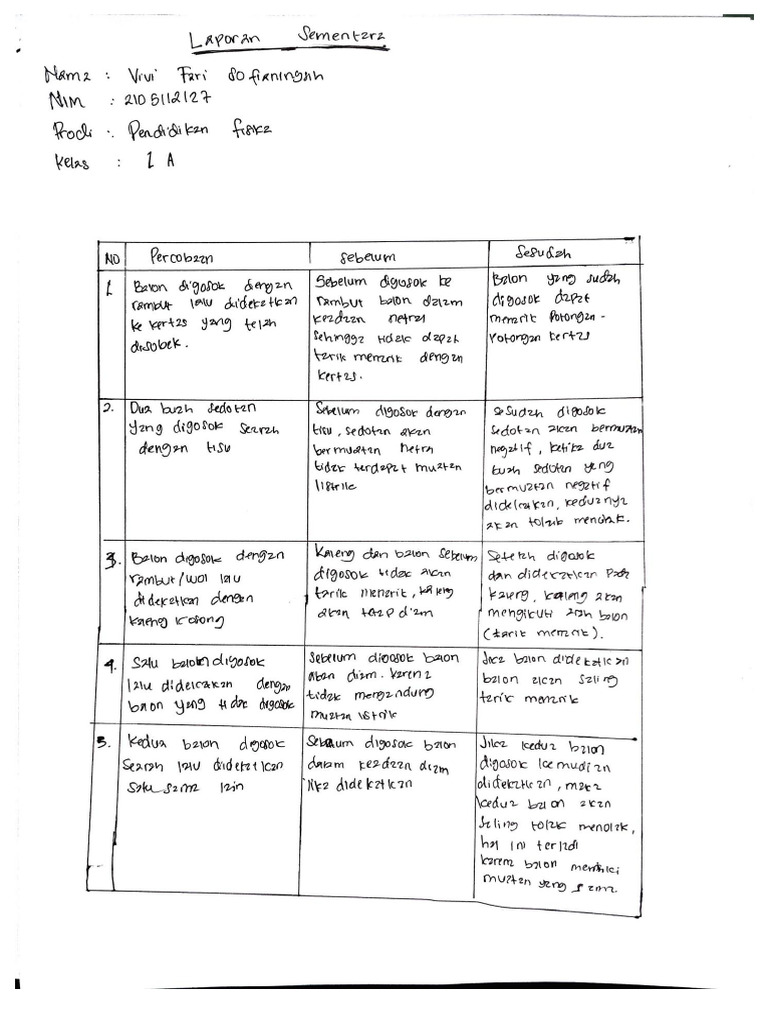 Laporan Sementara
Nama : Vivi Fari Sofianingsih
NIM : 2105112127
Prodi : Pendidikan fisika
Kelas : 1 A
NO
Percobaan
Sebelum
Sesudah
1.
Balon digosok dengan
rambut lalu didekatkan
ke kertas yang telah
disobek.
Sebelum digosok ke
rambut balon dalam
keadaan netral
sehingga tidak dapat
tarik menarik dengan
kertas.
Balon yang sudah
digosok dapat
menarik Potongan -
Potongan kertas
2.
Dua buah sedotan
yang digosok searah
dengan tisu
Sebelum digosok dengan
tisu, sedotan akan
bermuatan netral
tidak terdapat muatan
listrik
Sesudah digosok
sedotan akan bermuatan
negatif, ketika dua
buah sedotan yang
bermuatan negatif
didekatkan, keduanya
akan tolak menolak.
3.
Balon digosok dengan
rambut/wol lalu
didekatkan dengan
kaleng kosong
Kaleng dan balon sebelum
digosok tidak akan
tarik menarik, kaleng
akan tetap diam
Setelah digosok
dan didekatkan pada
kaleng, kaleng akan
mengikuti arah balon
(tarik menarik).
4.
Satu balon digosok
lalu didekatkan dengan
balon yang tidak digosok
Sebelum digosok balon
akan diam. karena
tidak mengandung
muatan listrik
Jika balon didekatkan
balon akan saling
tarik menarik
5.
Kedua balon digosok
Searah lalu didekatkan
satu sama lain
Sebelum digosok balon
dalam keadaan diam
jika didekatkan
Jika kedua balon
digosok kemudian
didekatkan, maka
kedua balon akan
saling tolak menolak,
hal ini terjadi
karena balon memiliki
muatan yang sama.